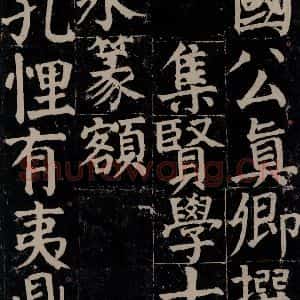 國公真卿撰
集賢學士
冰篆額
孔悝有夷鼎
Shufawang.CN